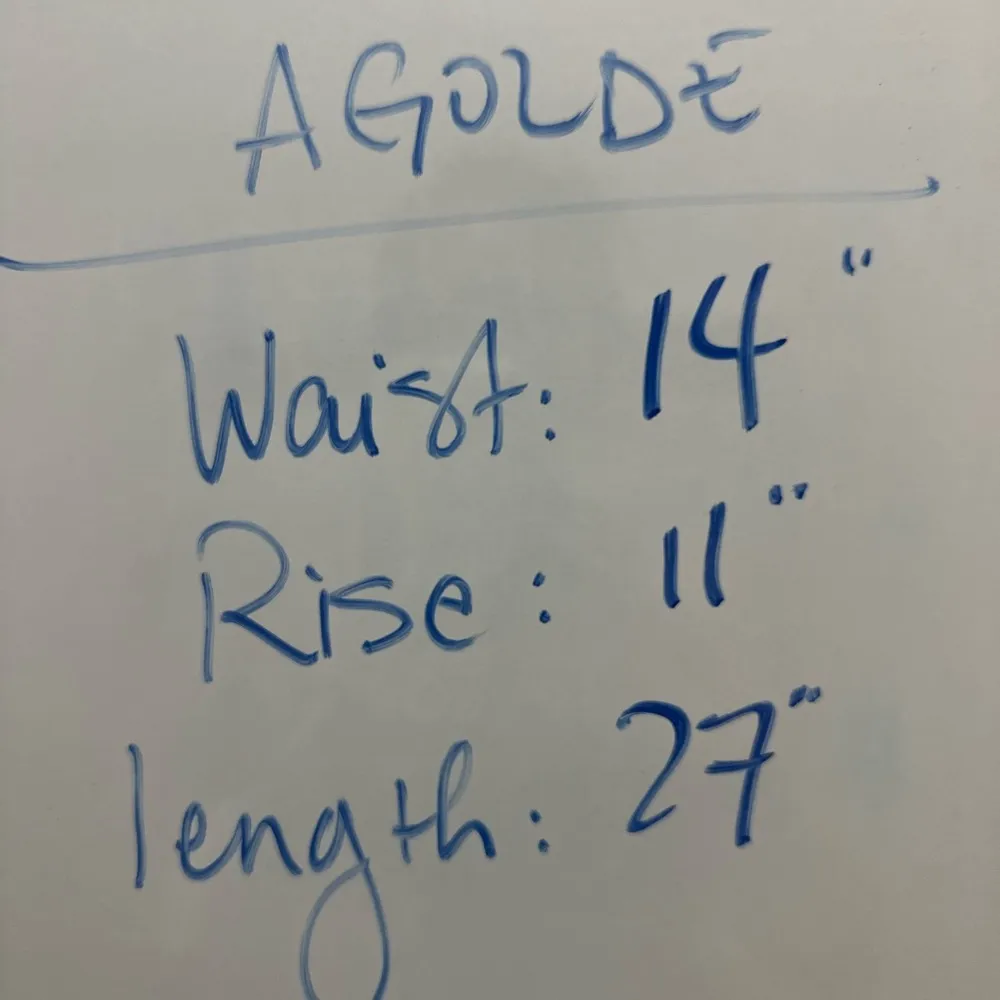 AGOLDE
Waist: 14"
Rise: 11"
length: 27"